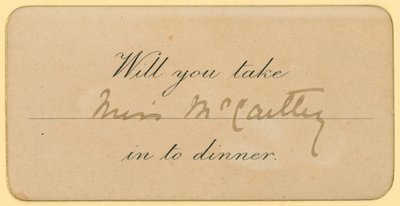 Will you take
Miss McCartey
in to dinner.